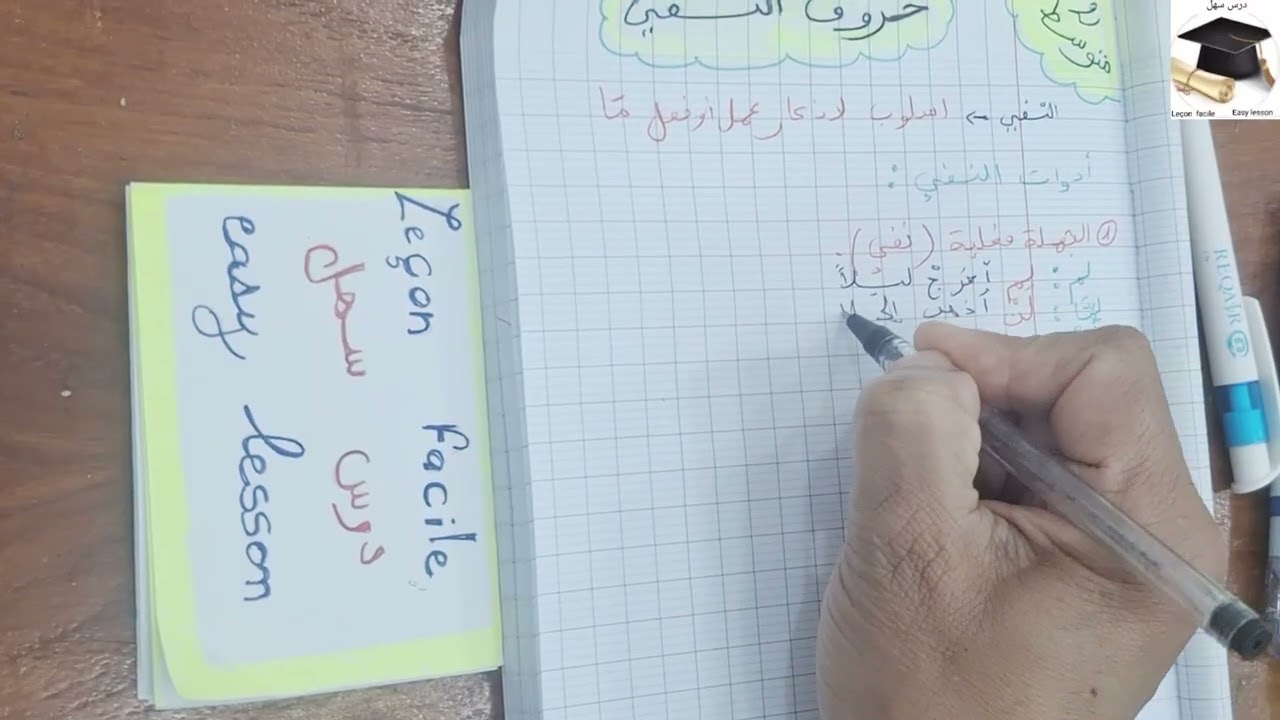 حروف النفي
متوسط
النفي → أسلوب لإنكار عمل أو فعل مّا
أدوات النفي :
① الجملة فعلية (نفي) :
لم : لم أخرجْ ليلاً
لن : لن أذهب إلى
Leçon Facile
درس سهل
easy lesson
درس سهل
Leçon facile Easy lesson
REQAIR